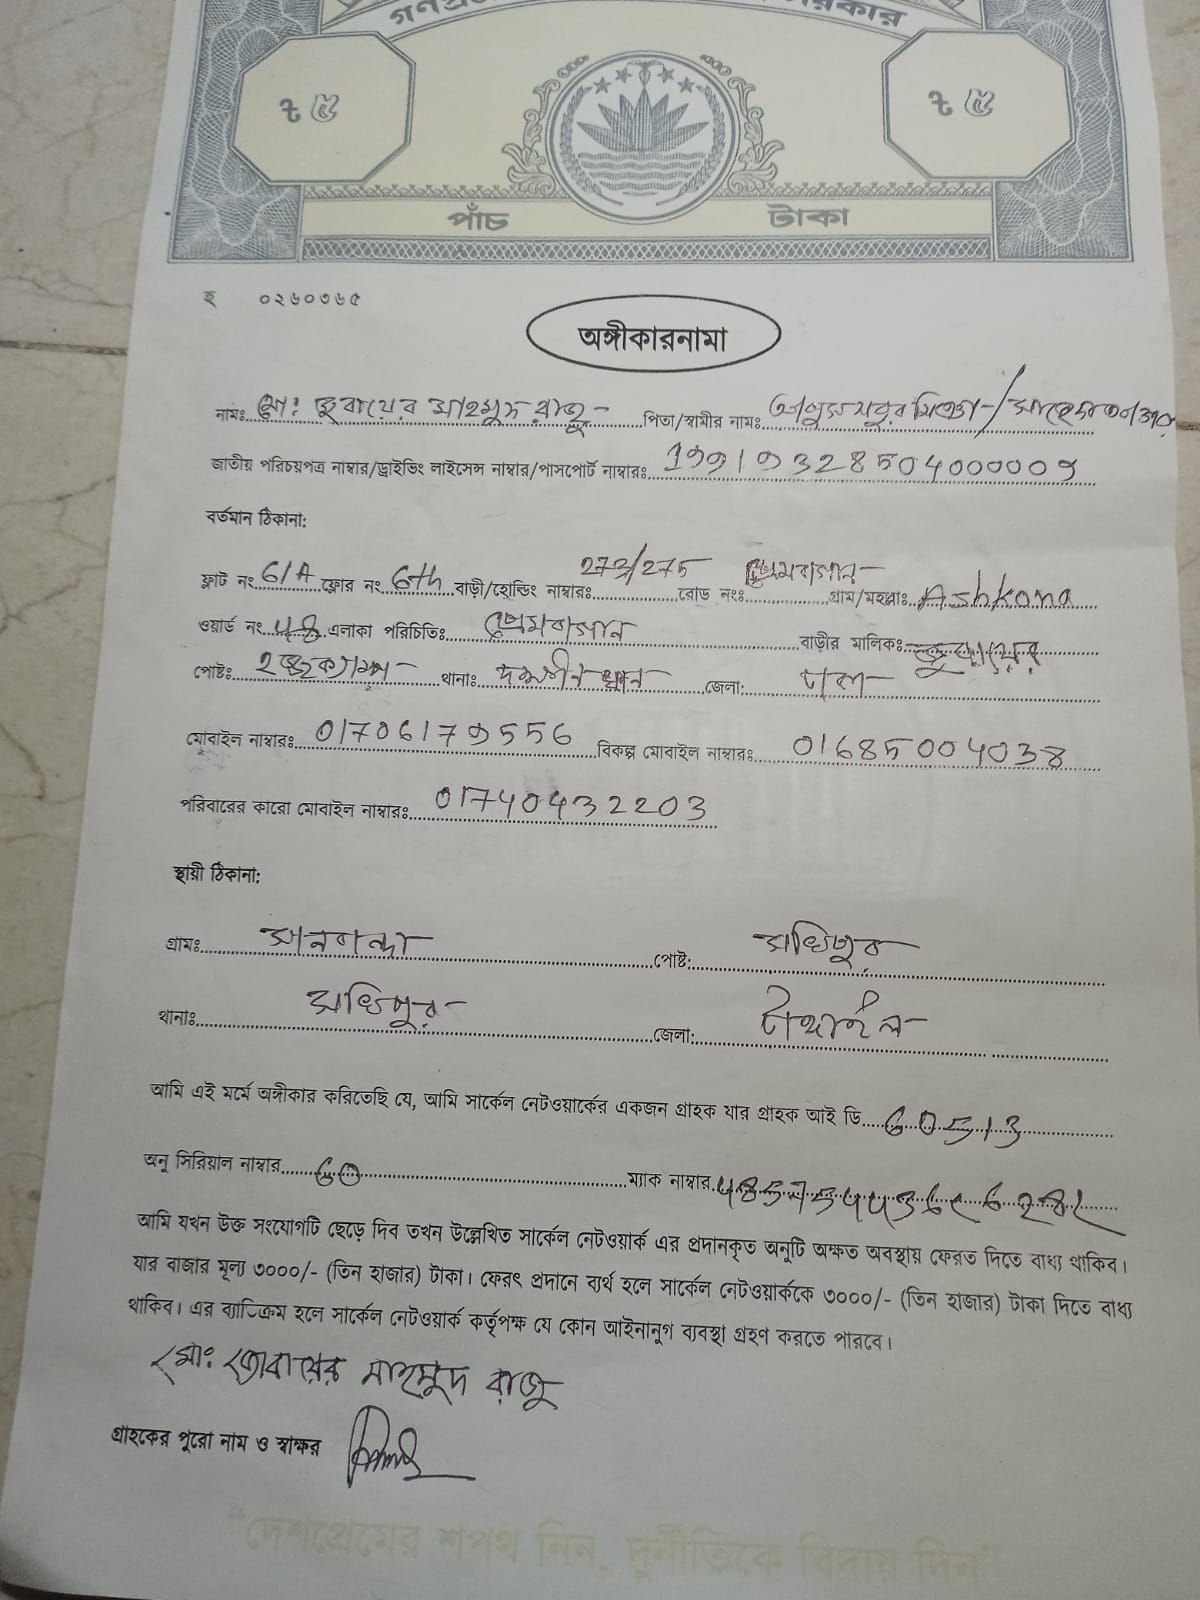 ৳ ৫ ৳ ৫
পাঁচ টাকা
হ ০২৬০৩৬৫
অঙ্গীকারনামা
নামঃ মো: জুবায়ের মাহমুদ রাজু পিতা/স্বামীর নামঃ
জাতীয় পরিচয়পত্র নাম্বার/ড্রাইভিং লাইসেন্স নাম্বার/পাসপোর্ট নাম্বারঃ 19919328504000009
বর্তমান ঠিকানা:
ফ্লাট নং 6/A ফ্লোর নং 6th বাড়ী/হোল্ডিং নাম্বারঃ 273/275 রোড নংঃ প্রেমবাগান গ্রাম/মহল্লাঃ Ashkona
ওয়ার্ড নং এলাকা পরিচিতিঃ প্রেমবাগান বাড়ীর মালিকঃ
পোষ্টঃ হজ্জক্যাম্প থানাঃ দক্ষীনখান জেলা: ঢাকা
মোবাইল নাম্বারঃ 01706179556 বিকল্প মোবাইল নাম্বারঃ 01685004038
পরিবারের কারো মোবাইল নাম্বারঃ 01740432203
স্থায়ী ঠিকানা:
গ্রামঃ পোষ্ট:
থানাঃ জেলা:
আমি এই মর্মে অঙ্গীকার করিতেছি যে, আমি সার্কেল নেটওয়ার্কের একজন গ্রাহক যার গ্রাহক আই ডি 60513
অনু সিরিয়াল নাম্বার ম্যাক নাম্বার
আমি যখন উক্ত সংযোগটি ছেড়ে দিব তখন উল্লেখিত সার্কেল নেটওয়ার্ক এর প্রদানকৃত অনুটি অক্ষত অবস্থায় ফেরত দিতে বাধ্য থাকিব।
যার বাজার মূল্য ৩০০০/- (তিন হাজার) টাকা। ফেরৎ প্রদানে ব্যর্থ হলে সার্কেল নেটওয়ার্ককে ৩০০০/- (তিন হাজার) টাকা দিতে বাধ্য
থাকিব। এর ব্যাতিক্রম হলে সার্কেল নেটওয়ার্ক কর্তৃপক্ষ যে কোন আইনানুগ ব্যবস্থা গ্রহণ করতে পারবে।
মো: জোবায়ের মাহমুদ রাজু
গ্রাহকের পুরো নাম ও স্বাক্ষর
“দেশপ্রেমের শপথ নিন, দুর্নীতিকে বিদায় দিন”